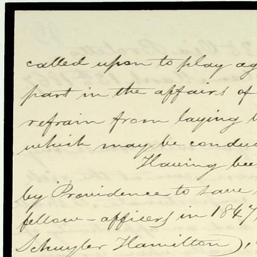 called upon to play ag
part in the affairs of
refrain from laying b
which may be conduc
Having bee
by Providence to save
fellow-officers in 1847,
Schuyler Hamilton),